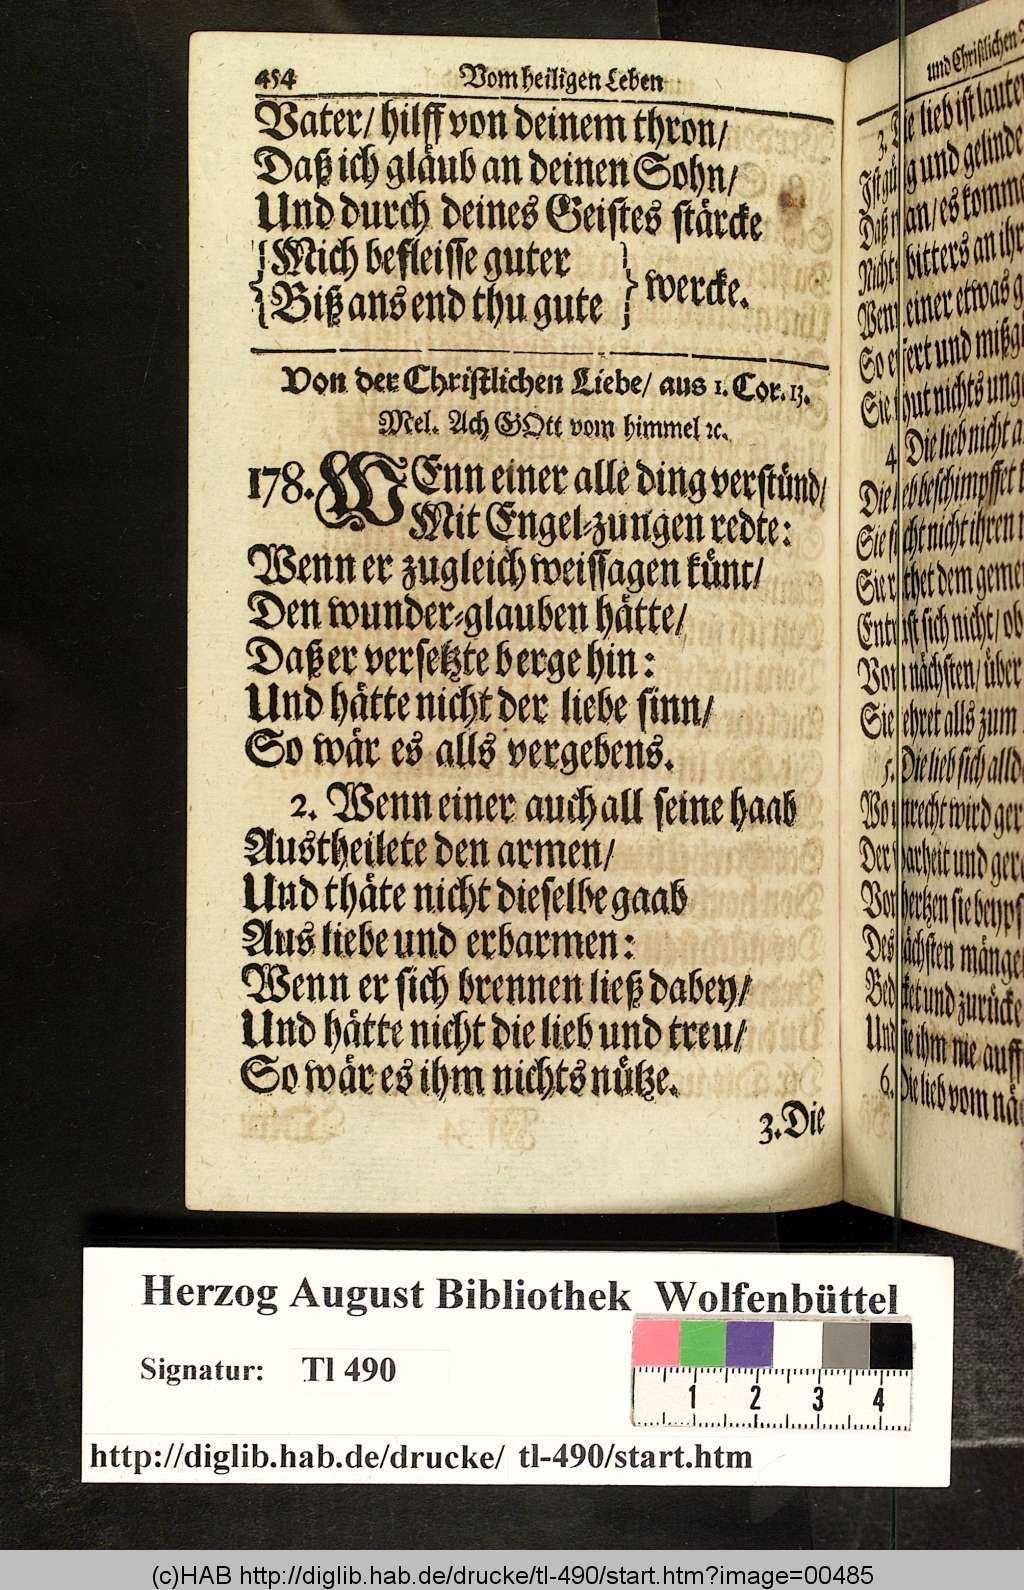 454 Vom heiligen Leben
Vater/ hilff von deinem thron/
Daß ich gläub an deinen Sohn/
Und durch deines Geistes stärcke
{Mich befleisse guter
Biß ans end thu gute} wercke.
Von der Christlichen Liebe/ aus 1. Cor. 13.
Mel. Ach GOtt vom himmel ꝛc.
178. WEnn einer alle ding verstünd/
Mit Engel-zungen redte:
Wenn er zugleich weissagen künt/
Den wunder-glauben hätte/
Daß er versetzte berge hin:
Und hätte nicht der liebe sinn/
So wär es alls vergebens.
2. Wenn einer auch all seine haab
Austheilete den armen/
Und thäte nicht dieselbe gaab
Aus liebe und erbarmen:
Wenn er sich brennen ließ dabey/
Und hätte nicht die lieb und treu/
So wär es ihm nichts nütze.
3. Die
und Christlichen
3. Die lieb ist lauter
und gelinde
an/ es komme
bitters an ihr
einer etwas
und mißg
nichts
4. Die lieb nicht
beschimpffet
nicht ihren
dem gemei
sich nicht/ ob
nächsten/ über
Sie kehret alls zum
5. Die lieb sich
unrecht wird
warheit und
hertzen sie
Des nächsten mänge
und zurücke
Und sie ihm nie auff
6. Die lieb vom nä
Herzog August Bibliothek Wolfenbüttel
Signatur: Tl 490
1 2 3 4
http://diglib.hab.de/drucke/ tl-490/start.htm
(c)HAB http://diglib.hab.de/drucke/tl-490/start.htm?image=00485